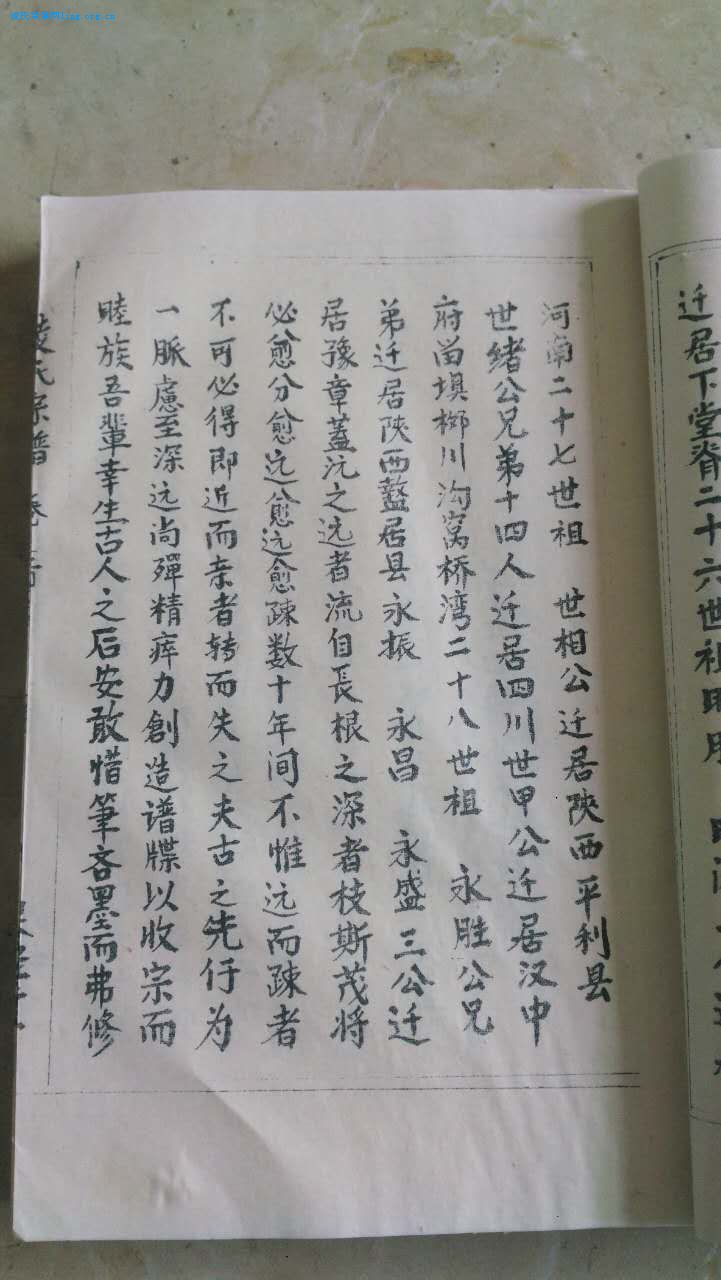 迁居下堂脊二十六世祖
河南二十七世祖 世相公迁居陕西平利县
世绪公兄弟十四人迁居四川世甲公迁居汉中
府畄埧栁川沟窝桥湾二十八世祖 永胜公兄
弟迁居陕西盩居县永振 永昌 永盛三公迁
居豫章蓋沅之远者流自長根之深者枝斯茂将
必愈分愈远愈远愈疎数十年间不惟远而疎者
不可必得即近而亲者转而失之夫古之先仃为
一脈慮至深远尚殫精瘁力創造谱牒以收宗而
睦族吾輩幸生古人之后安敢惜筆吝墨而弗修
氏宗譜